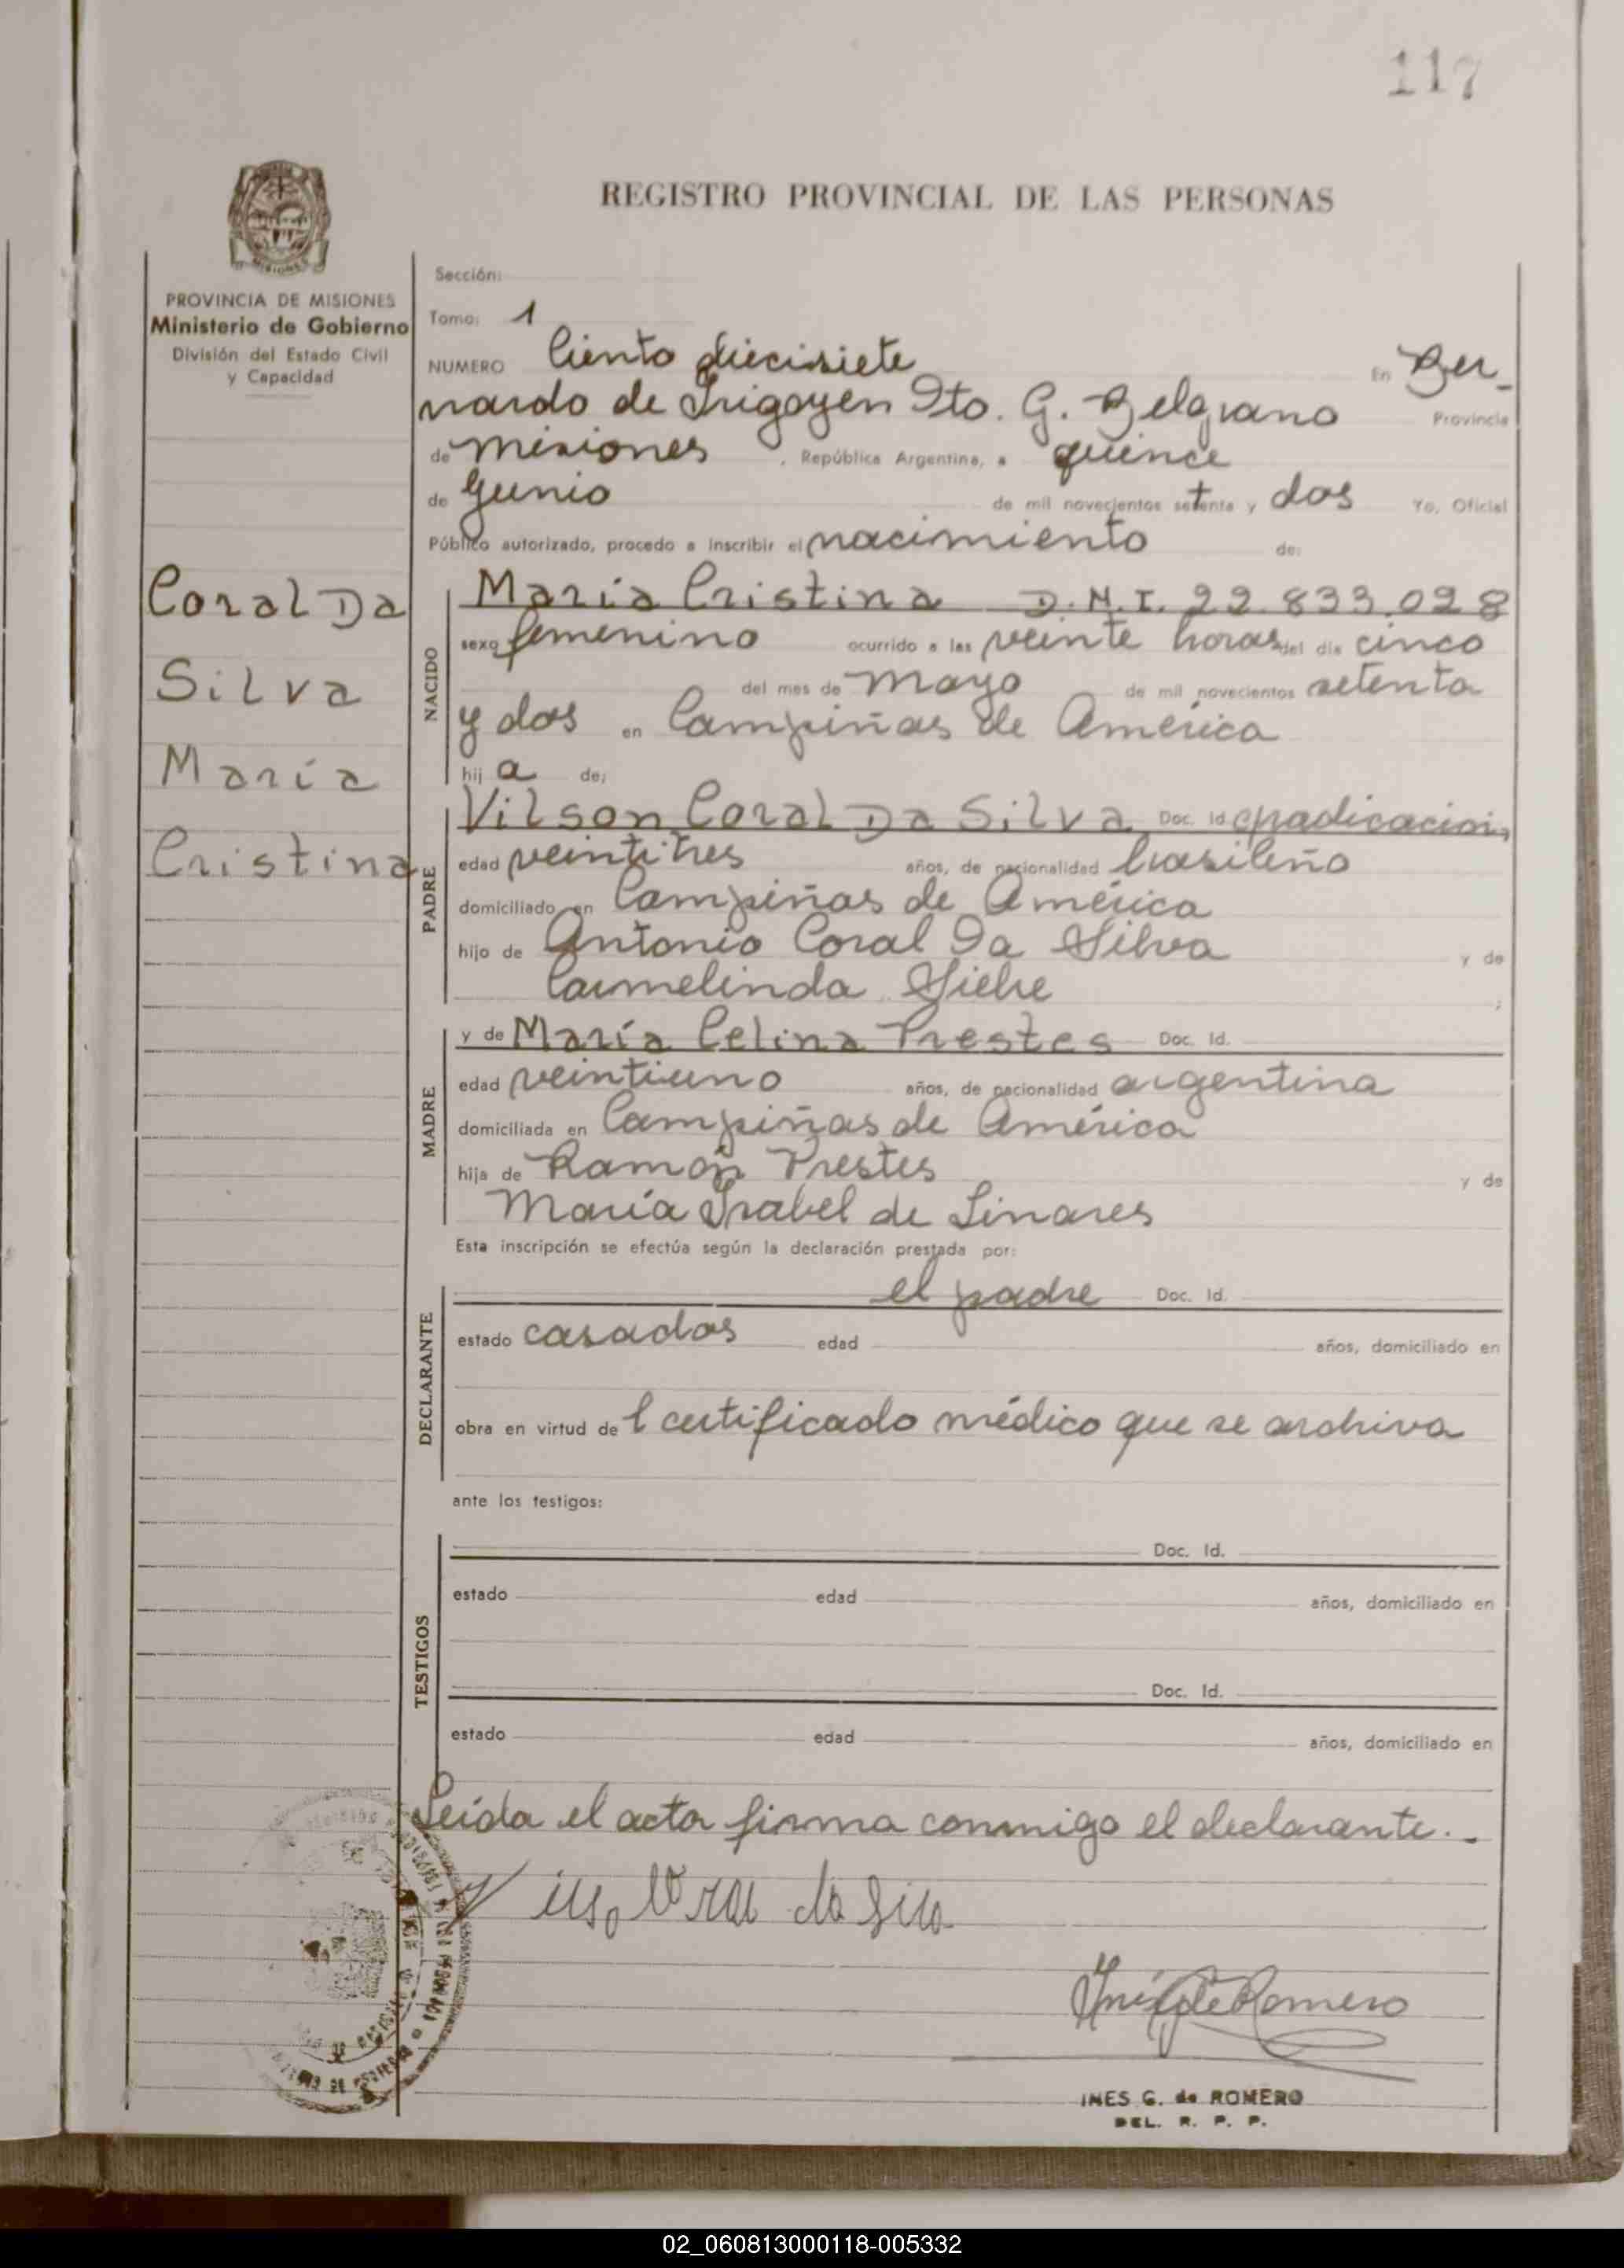 117
REGISTRO PROVINCIAL DE LAS PERSONAS
MISIONES
PROVINCIA DE MISIONES
Ministerio de Gobierno
División del Estado Civil
y Capacidad
Coral Da
Silva
María
Cristina
Sección:
Tomo: 1
NUMERO Ciento diecisiete En Ber-
nardo de Irigoyen Dto. G. Belgrano Provincia
de Misiones, República Argentina, a quince
de Junio de mil novecientos setenta y dos Yo, Oficial
Público autorizado, procedo a inscribir el nacimiento de:
NACIDO
María Cristina D.N.I. 22.833.028
sexo femenino ocurrido a las veinte horas del día cinco
del mes de Mayo de mil novecientos setenta
y dos en Campiñas de América
hij a de;
PADRE
Vilson Coral Da Silva Doc. Id.
edad veintitres años, de nacionalidad brasileño
domiciliado en Campiñas de América
hijo de Antonio Coral Da Silva y de
Carmelinda ;
MADRE
y de María Celina Prestes Doc. Id.
edad veintiuno años, de nacionalidad argentina
domiciliada en Campiñas de América
hija de Ramón Prestes y de
María Isabel de Linares
Esta inscripción se efectúa según la declaración prestada por:
DECLARANTE
el padre Doc. Id.
estado casados edad años, domiciliado en
obra en virtud de l certificado médico que se archiva
ante los testigos:
TESTIGOS
Doc. Id.
estado edad años, domiciliado en
Doc. Id.
estado edad años, domiciliado en
Leída el acta firma conmigo el declarante.-
Inés G de Romero
INES G. de ROMERO
DEL. R. P. P.
02_060813000118-005332